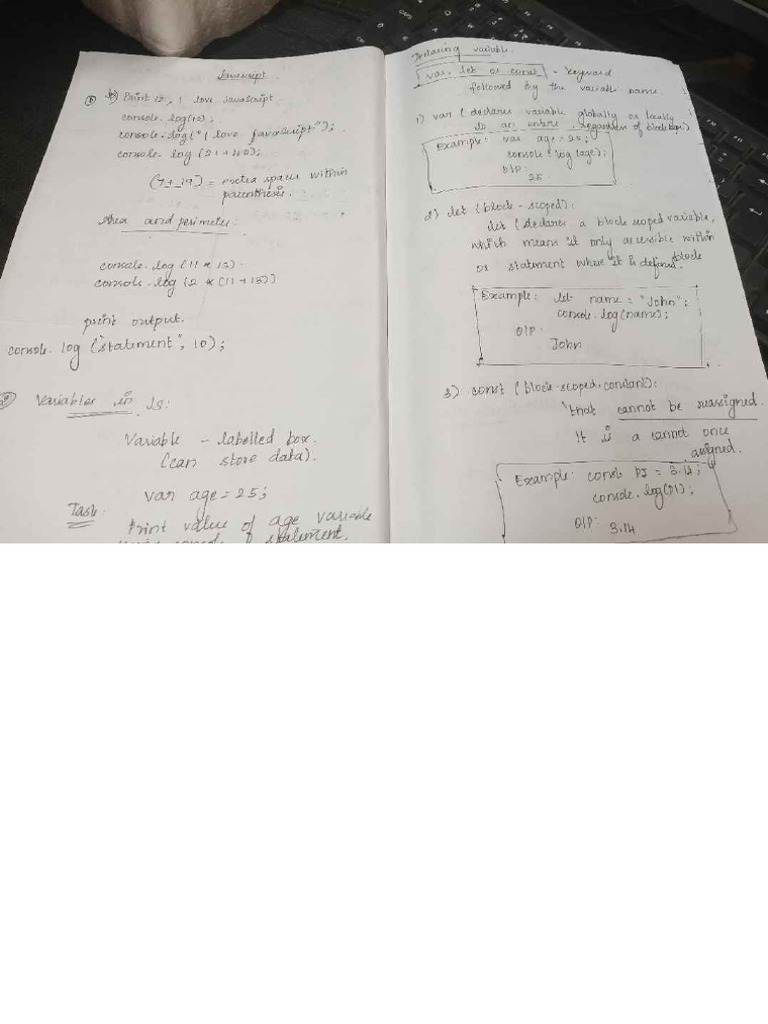 Javascript
① b) Print 12, I love JavaScript
console.log(12);
console.log("I love JavaScript");
console.log (21+40);
(7+_19) = extra spaces within
parenthesis.
Area and perimeter:
console.log (11 * 13)
console.log (2 * (11 + 13))
print output.
console.log ("statement", 10);
Variables in JS:
Variable - labelled box.
(can store data).
var age = 25;
Task:
Print value of age variable
statement.
Declaring variable.
var, let or const - keyword
followed by the variable name.
1) var (declares variable globally or locally
to an entire, regardless of block
Example: var age = 25;
console.log (age);
O/P:
25.
2) let (block - scoped):
let (declares a block scoped variable,
which means it only accessible within
block
or statement where it is defined.
Example: let name = "John";
console.log(name);
O/P.
John
3) const (block-scoped, constant):
that cannot be reassigned.
It is a cannot once
assigned.
Example: const PI = 3.14;
console.log(PI);
O/P:
3.14